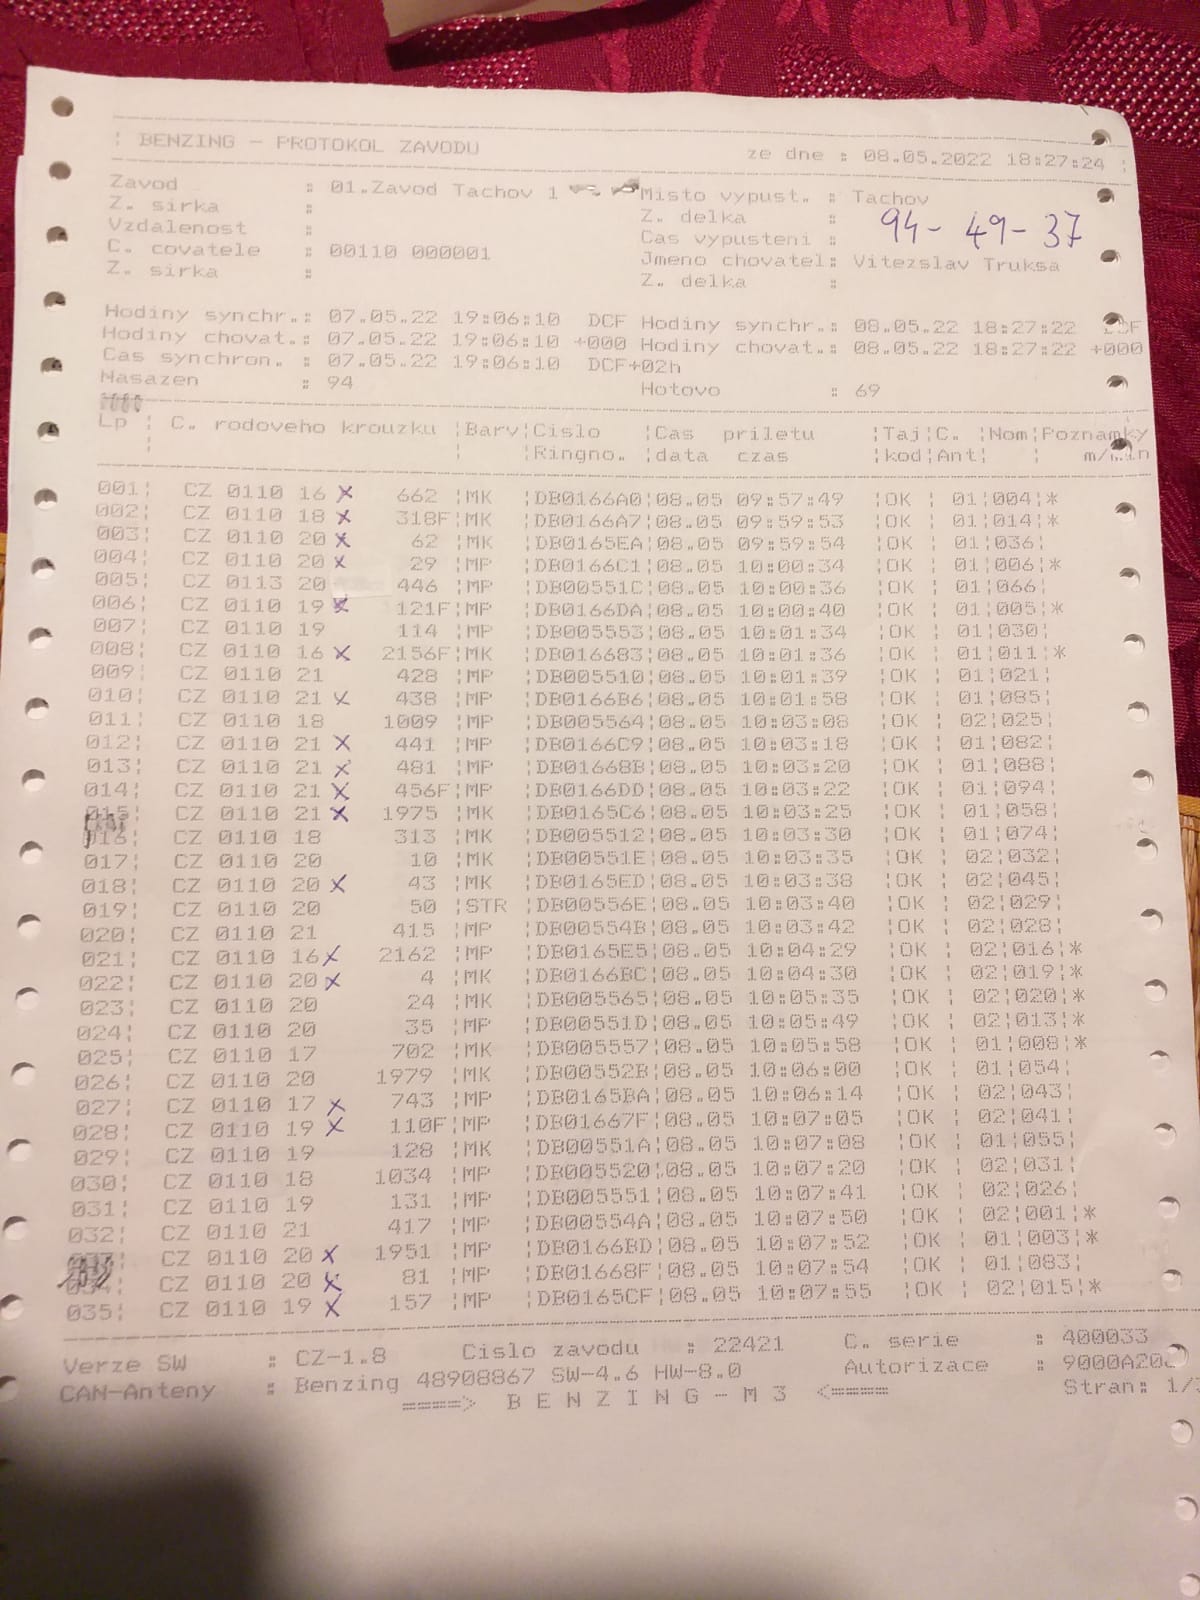 BENZING - PROTOKOL ZAVODU ze dne : 08.05.2022 18:27:24
Zavod : 01.Zavod Tachov 1 Misto vypust. : Tachov
Z. sirka : Z. delka :
Vzdalenost : Cas vypusteni : 94- 49- 37
C. covatele : 00110 000001 Jmeno chovatel: Vitezslav Truksa
Z. sirka : Z. delka :
Hodiny synchr.: 07.05.22 19:06:10 DCF Hodiny synchr.: 08.05.22 18:27:22 DCF
Hodiny chovat.: 07.05.22 19:06:10 +000 Hodiny chovat.: 08.05.22 18:27:22 +000
Cas synchron. : 07.05.22 19:06:10 DCF+02h
Nasazen : 94 Hotovo : 69
Lp ¦ C. rodoveho krouzku ¦Barv¦Cislo ¦Cas priletu ¦Taj¦C. ¦Nom¦Poznamky
¦ ¦ ¦Ringno. ¦data czas ¦kod¦Ant¦ ¦ m/min
001¦ CZ 0110 16 x 662 ¦MK ¦DB0166A0¦08.05 09:57:49 ¦OK ¦ 01¦004¦*
002¦ CZ 0110 18 x 318F¦MK ¦DB0166A7¦08.05 09:59:53 ¦OK ¦ 01¦014¦*
003¦ CZ 0110 20 x 62 ¦MK ¦DB0165EA¦08.05 09:59:54 ¦OK ¦ 01¦036¦
004¦ CZ 0110 20 x 29 ¦MP ¦DB0166C1¦08.05 10:00:34 ¦OK ¦ 01¦006¦*
005¦ CZ 0113 20 446 ¦MP ¦DB00551C¦08.05 10:00:36 ¦OK ¦ 01¦066¦
006¦ CZ 0110 19 x 121F¦MP ¦DB0166DA¦08.05 10:00:40 ¦OK ¦ 01¦005¦*
007¦ CZ 0110 19 114 ¦MP ¦DB005553¦08.05 10:01:34 ¦OK ¦ 01¦030¦
008¦ CZ 0110 16 x 2156F¦MK ¦DB016683¦08.05 10:01:36 ¦OK ¦ 01¦011¦*
009¦ CZ 0110 21 428 ¦MP ¦DB005510¦08.05 10:01:39 ¦OK ¦ 01¦021¦
010¦ CZ 0110 21 x 438 ¦MP ¦DB0166B6¦08.05 10:01:58 ¦OK ¦ 01¦085¦
011¦ CZ 0110 18 1009 ¦MP ¦DB005564¦08.05 10:03:08 ¦OK ¦ 02¦025¦
012¦ CZ 0110 21 x 441 ¦MP ¦DB0166C9¦08.05 10:03:18 ¦OK ¦ 01¦082¦
013¦ CZ 0110 21 x 481 ¦MP ¦DB01668B¦08.05 10:03:20 ¦OK ¦ 01¦088¦
014¦ CZ 0110 21 x 456F¦MP ¦DB0166DD¦08.05 10:03:22 ¦OK ¦ 01¦094¦
015¦ CZ 0110 21 x 1975 ¦MK ¦DB0165C6¦08.05 10:03:25 ¦OK ¦ 01¦058¦
016¦ CZ 0110 18 313 ¦MK ¦DB005512¦08.05 10:03:30 ¦OK ¦ 01¦074¦
017¦ CZ 0110 20 10 ¦MK ¦DB00551E¦08.05 10:03:35 ¦OK ¦ 02¦032¦
018¦ CZ 0110 20 x 43 ¦MK ¦DB0165ED¦08.05 10:03:38 ¦OK ¦ 02¦045¦
019¦ CZ 0110 20 50 ¦STR ¦DB00556E¦08.05 10:03:40 ¦OK ¦ 02¦029¦
020¦ CZ 0110 21 415 ¦MP ¦DB00554B¦08.05 10:03:42 ¦OK ¦ 02¦028¦
021¦ CZ 0110 16 x 2162 ¦MP ¦DB0165E5¦08.05 10:04:29 ¦OK ¦ 02¦016¦*
022¦ CZ 0110 20 x 4 ¦MK ¦DB0166BC¦08.05 10:04:30 ¦OK ¦ 02¦019¦*
023¦ CZ 0110 20 24 ¦MK ¦DB005565¦08.05 10:05:35 ¦OK ¦ 02¦020¦*
024¦ CZ 0110 20 35 ¦MP ¦DB00551D¦08.05 10:05:49 ¦OK ¦ 02¦013¦*
025¦ CZ 0110 17 702 ¦MK ¦DB005557¦08.05 10:05:58 ¦OK ¦ 01¦008¦*
026¦ CZ 0110 20 1979 ¦MK ¦DB00552B¦08.05 10:06:00 ¦OK ¦ 01¦054¦
027¦ CZ 0110 17 x 743 ¦MP ¦DB0165BA¦08.05 10:06:14 ¦OK ¦ 02¦043¦
028¦ CZ 0110 19 x 110F¦MP ¦DB01667F¦08.05 10:07:05 ¦OK ¦ 02¦041¦
029¦ CZ 0110 19 128 ¦MK ¦DB00551A¦08.05 10:07:08 ¦OK ¦ 01¦055¦
030¦ CZ 0110 18 1034 ¦MP ¦DB005520¦08.05 10:07:20 ¦OK ¦ 02¦031¦
031¦ CZ 0110 19 131 ¦MP ¦DB005551¦08.05 10:07:41 ¦OK ¦ 02¦026¦
032¦ CZ 0110 21 417 ¦MP ¦DB00554A¦08.05 10:07:50 ¦OK ¦ 02¦001¦*
CZ 0110 20 x 1951 ¦MP ¦DB0166BD¦08.05 10:07:52 ¦OK ¦ 01¦003¦*
034¦ CZ 0110 20 x 81 ¦MP ¦DB01668F¦08.05 10:07:54 ¦OK ¦ 01¦083¦
035¦ CZ 0110 19 x 157 ¦MP ¦DB0165CF¦08.05 10:07:55 ¦OK ¦ 02¦015¦*
Verze SW : CZ-1.8 Cislo zavodu : 22421 C. serie : 400033
CAN-Anteny : Benzing 48908867 SW-4.6 HW-8.0 Autorizace :
====> B E N Z I N G - M 3 <==== Stran: 1/